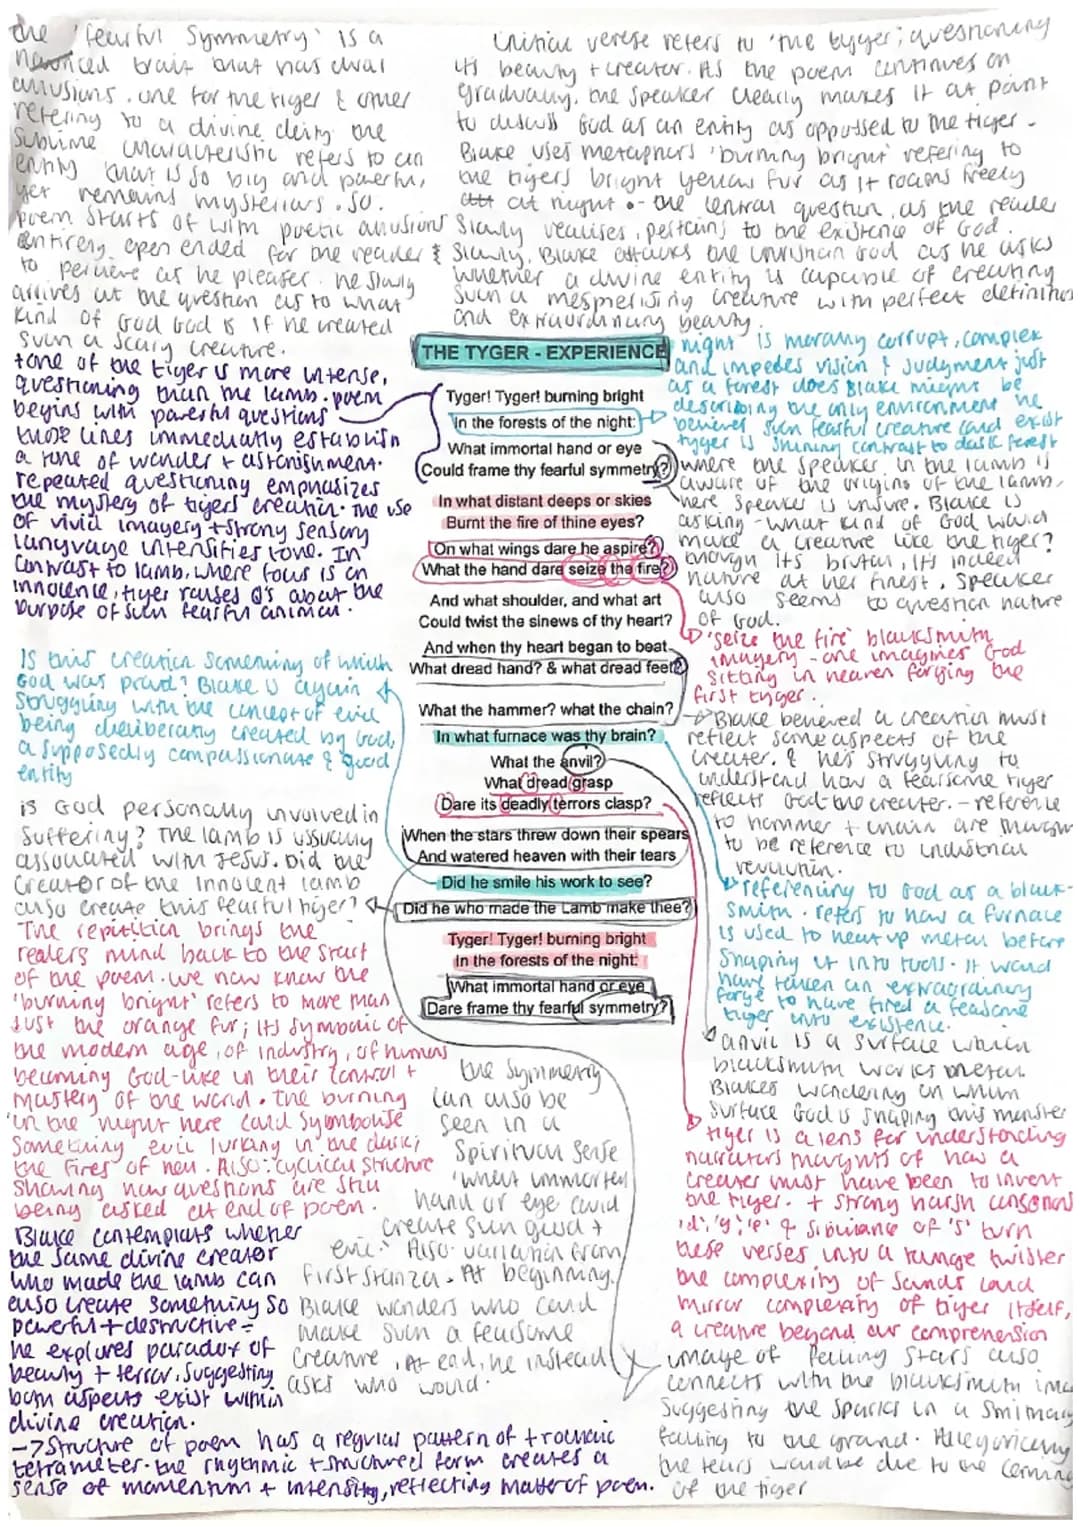 the 'fearful Symmetry' is a
nuanced trait that has dual
allusions. one for the tiger & other
refering to a divine deity. the
sublime characteristic refers to an
entity that is so big and powerful,
yet remains mysterious. so.
poem starts of with poetic allusions
entirely open ended for the reader
to percieve as he pleases. he slowly
arrives at the question as to what
kind of God God is if he created
such a scary creature.
Initial verese refers to 'the tyger', questioning
its beauty + creator. As the poem continues on
gradually, the speaker clearly makes it at point
to discuss God as an entity as oppossed to the tiger.
Blake uses metaphors 'burning bright' refering to
the tigers bright yellow fur as it roams freely
at night .- the central question, as the reader
slowly realises, pertains to the existence of God.
& Slowly, Blake attacks the christian God as he asks
whether a divine entity is capable of creating
such a mesmerising creature with perfect definition
and extraordinary beauty.
tone of the tiger is more intense,
questioning than the lamb. poem
begins with powerful questions
those lines immediately establish
a tone of wonder + astonishment.
repeated questioning emphasizes
the mystery of tigers creation. the use
of vivid imagery + strong sensory
language intensifies tone. In
contrast to lamb, where focus is on
innocence, tiger raises Q's about the
purpose of such fearful animal.
THE TYGER - EXPERIENCE
Tyger! Tyger! burning bright
In the forests of the night:
What immortal hand or eye
Could frame thy fearful symmetry?
In what distant deeps or skies
Burnt the fire of thine eyes?
On what wings dare he aspire?
What the hand dare seize the fire?
And what shoulder, and what art
Could twist the sinews of thy heart?
And when thy heart began to beat
What dread hand? & what dread feet?
What the hammer? what the chain?
In what furnace was thy brain?
What the anvil?
What dread grasp
Dare its deadly terrors clasp?
When the stars threw down their spears
And watered heaven with their tears
Did he smile his work to see?
Did he who made the Lamb make thee?
Tyger! Tyger! burning bright
In the forests of the night:
What immortal hand or eye
Dare frame thy fearful symmetry?
night is morally corrupt, complex
and impedes vision & judgment just
as a forest does Blake might be
describing the only environment he
believes such fearful creature could exist
tyger is shining contrast to dark forest
where the speaker in the lamb is
aware of the origins of the lamb,
here speaker is unsure. Blake is
asking - what kind of God would
make a creature like the tiger?
though its brutal, its indeed
nature at her finest. Speaker
also seems to question nature
of God.
'seize the fire' blacksmith
imagery - one imagines God
sitting in heaven forging the
first tyger.
Blake believed a creation must
reflect some aspects of the
creater. & he's struggling to
understand how a fearsome tiger
reflects God-the creater. - reference
to hammer + chain are
to be reference to industrial
revolution.
referening to God as a black-
smith. refers to how a furnace
is used to heat up metal before
shaping it into tools. It would
have taken an extraordinary
forge to have fired a fearsome
tiger into existence.
anvil is a surface which
blacksmith works metal.
Blakes wondering on which
surface God is shaping this monster
tiger is a lens for understanding
narrators thoughts of how a
creater must have been to invent
the tiger. + strong harsh consonants
'd', 'g', & sibilance of 's' turn
these verses into a tounge twister
the complexity of sounds could
mirror complexity of tiger itself,
a creature beyond our comprehension
image of falling stars also
connects with the blacksmith
suggesting the sparks in a
falling to the ground. Allegorically
the tears would be due to the coming
of the tiger
Is this creation something of which
God was proud? Blake is again
struggling with the concept of evil
being deliberatly created by God,
a supposedly compassionate & good
entity
is God personally involved in
suffering? The lamb is usually
associated with Jesus. Did the
creator of the innocent lamb
also create this fearful tiger?
The repitition brings the
readers mind back to the start
of the poem. we now know the
'burning bright' refers to more than
just the orange fur; its symbolic of
the modern age, of industry, of humans
becoming God-like in their control +
mastery of the world. The burning
in the night here could symbolise
something evil lurking in the dark;
the fires of hell. Also: cyclical structure
showing how questions are still
being asked at end of poem.
Blake contemplats whether
the same divine creator
who made the lamb can
also create something so
powerful + destructive -
he explores paradox of
beauty + terror, suggesting
both aspects exist within
divine creation.
→ Structure of poem has a regular pattern of trochaic
tetrameter. the rhythmic + structured form creates a
sense of momentum + intensity, reflecting matter of poem.
the symmetry
can also be
seen in a
spiritual sense
'what immortal
hand or eye could
create such good +
evil.' Also: variation from
first stanza. At beginning,
Blake wonders who could
make such a fearsome
creature, At end, he instead
asks who would.